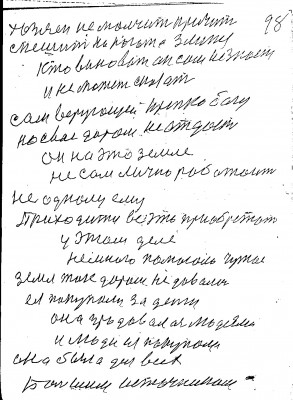 98
хозяин не молчит кричит
спешит на рогата землю
кто виноват он сам не знает
и не может сказат
сам верующей крепко богу
но свае даром не отдает
он на это земле
не сам лично работает
не одному ему
Приходити весть приобретат
у этом деле
немного помогать чужое
земля тоже даром не давалас
ея покупали за денги
она продавалася людями
и люди ея покупали
она была для всех
Болшим источником